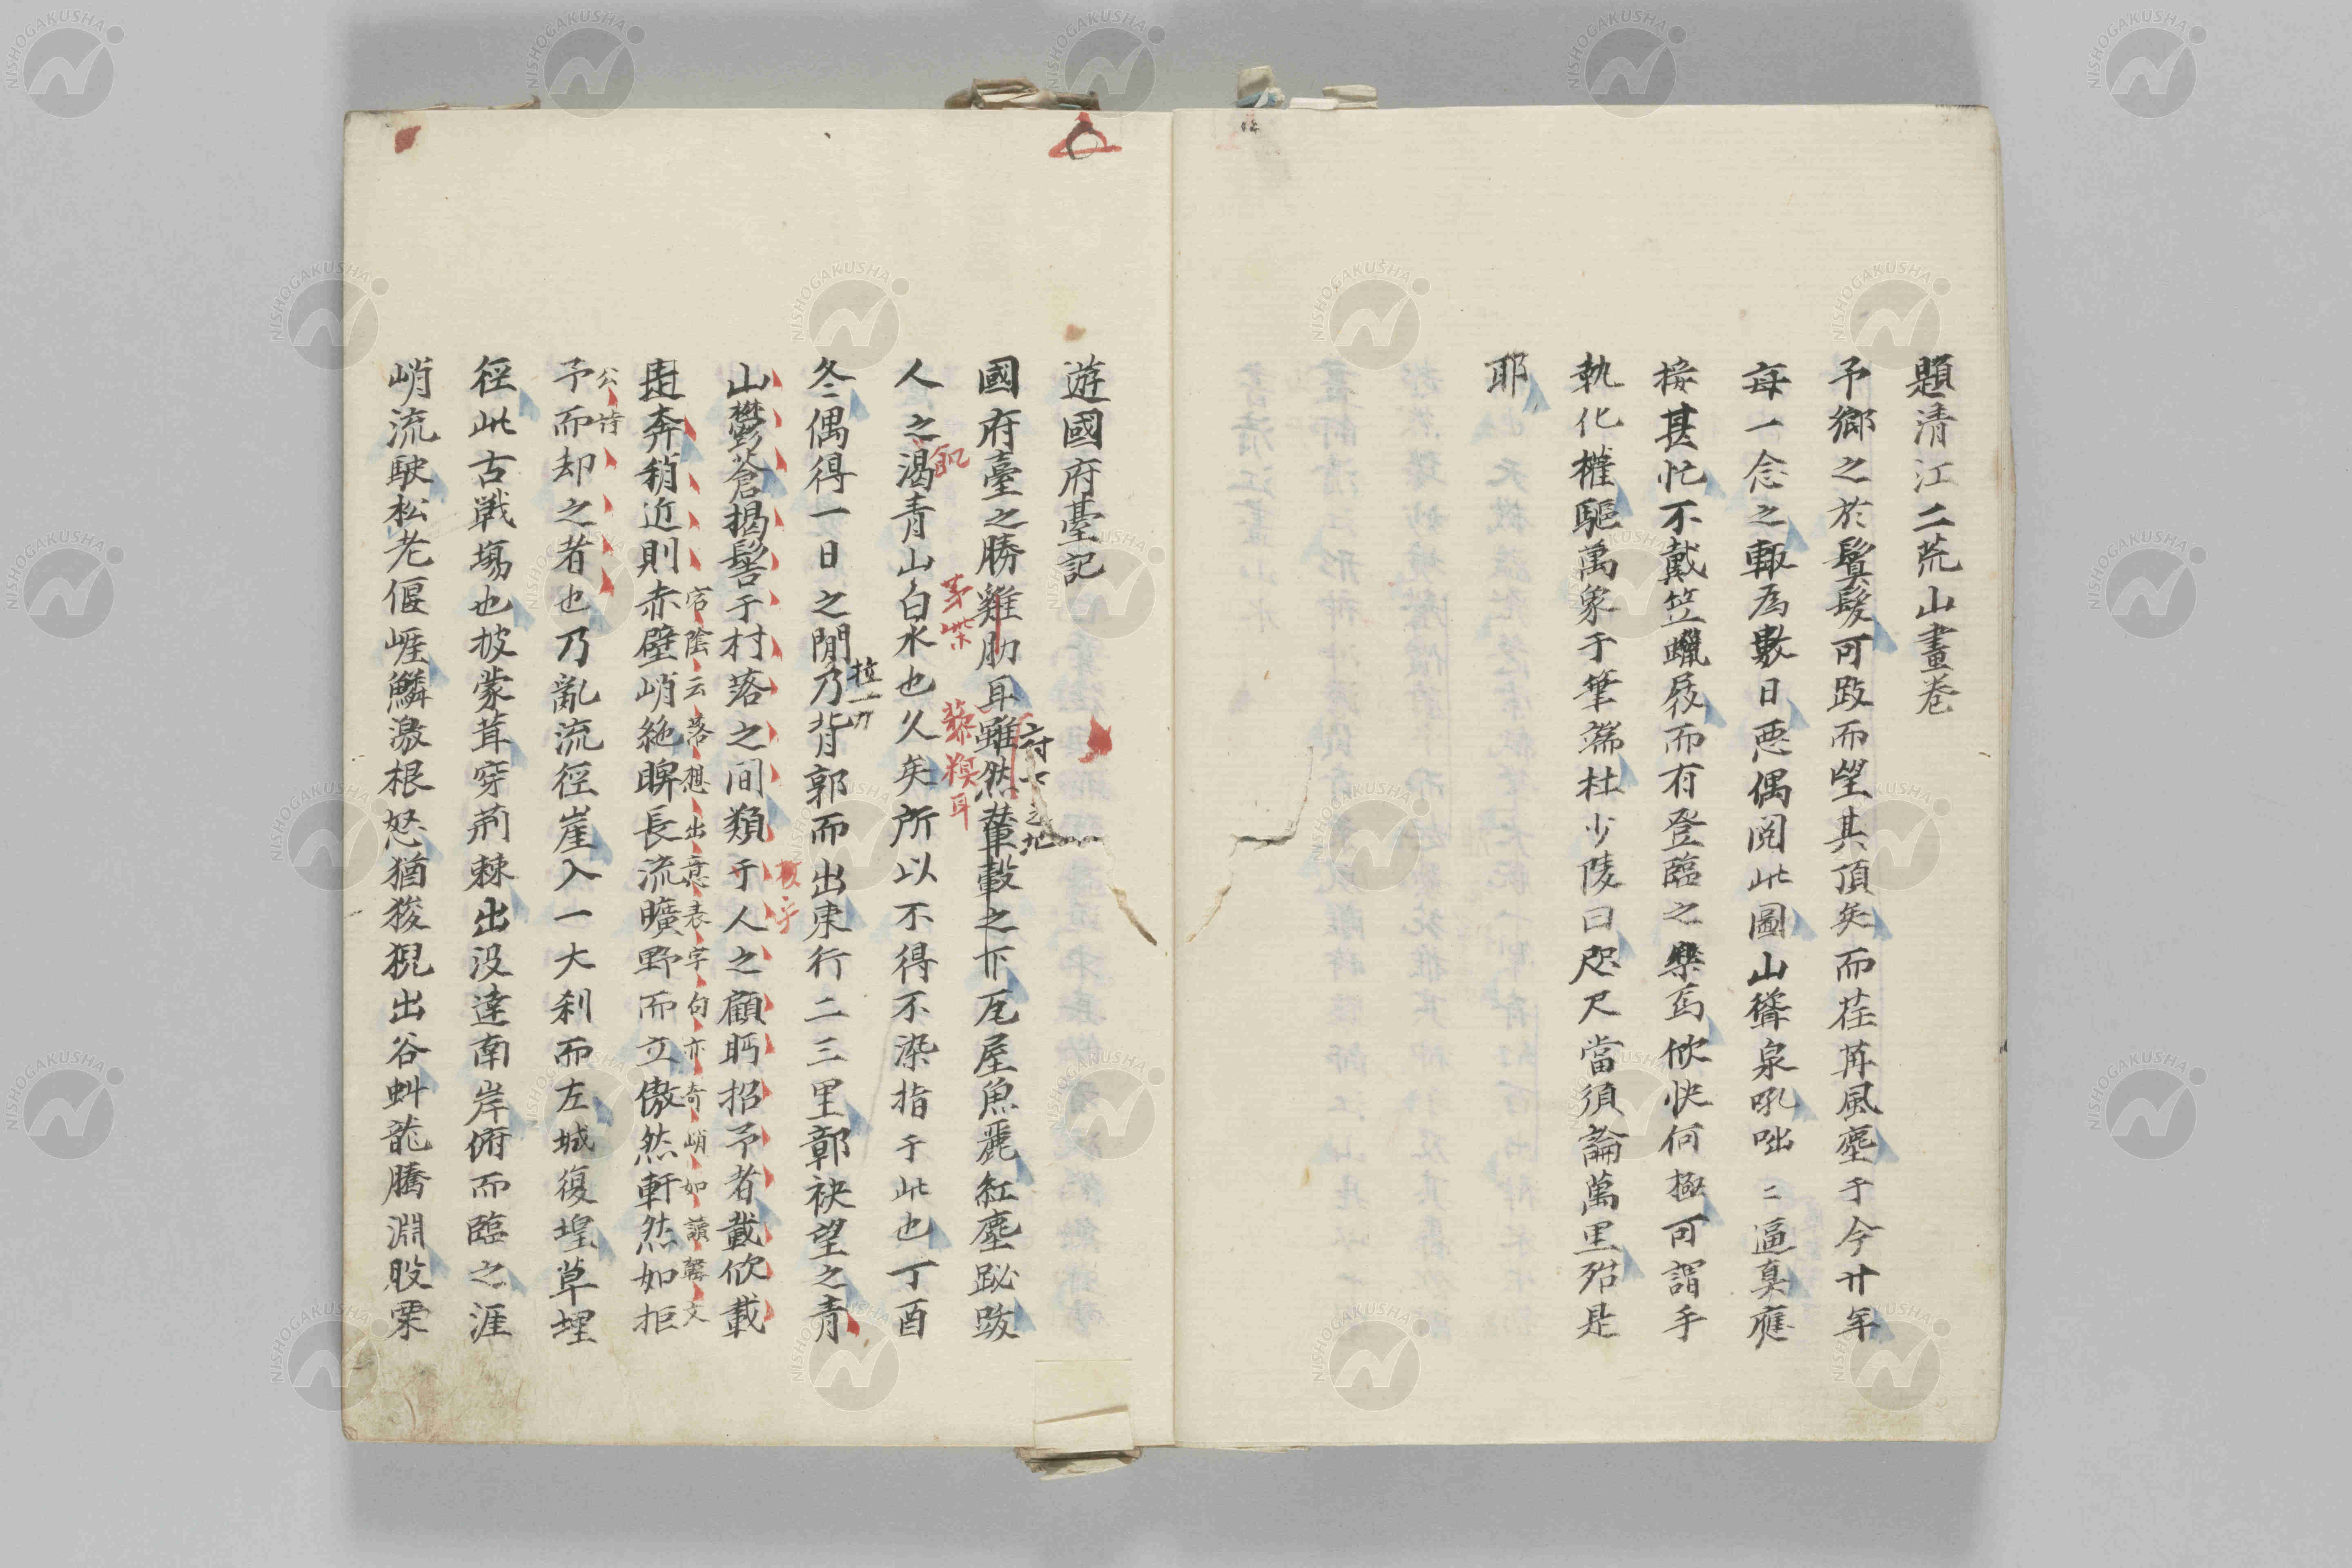 題清江二荒山畫卷
予鄉之於鬟髮可跂而望其頂矣而荏苒風塵于今廿年
每一念之輙為數日悪偶閲此圖山聳泉吼咄〻逼真應
接甚忙不戴笠蠟屐而有登臨之樂焉欣快何極可謂手
執化權驅萬象于筆端杜少陵曰咫尺當須論萬里殆是
耶
遊國府臺記
國府臺之勝雞肋耳雖然輦轂之下瓦屋魚麗紅塵跋
府下之地
茅柴
藜糗耳
人之渴青山白水也久矣所以不得不染指于此也丁酉
飢
冬偶得一日之閒乃背郭而出東行二三里鄣袂望之青
拉一
山鬱蒼揭髻于村落之间類于人之顧眄招予者載欣載
且奔稍近則赤壁峭絶睥長流曠野而立傲然軒然如拒
宕陰云落想出意表字句亦奇峭如讀韓文
公詩
予而却之者也乃亂流径崖入一大刹而左城復堭草埋
径此古戦塲也披蒙茸穿荊棘出没達南岸俯而臨之涯
峭流駛松老偃崕鱗激根怒猶狻猊出谷虯龍騰淵股栗
NISHOGAKUSHA